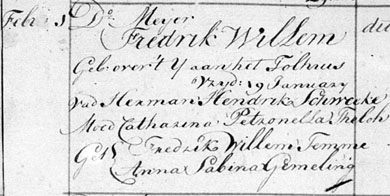 Febr 5 Do Meyer
Fredrik Willem
Geb over't Y aan het Tolhuis
Vryd: 19 January
Vad Herman Hendrik Schwecke
Moed Catharina Petronella Melch
Get Fredrik Willem Temme
Anna Sabina Gemeling